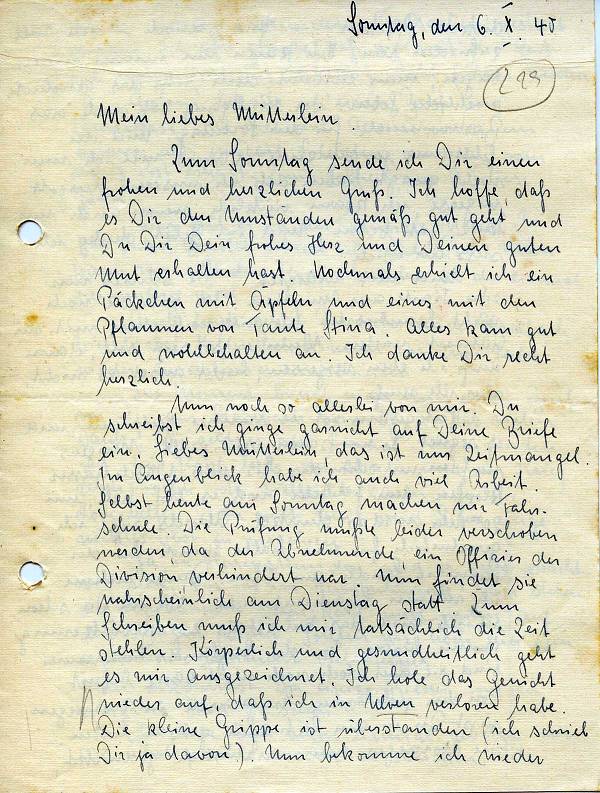 Sonntag, den 6. X. 40
299
Mein liebes Mütterlein.
Zum Sonntag sende ich Dir einen
frohen und herzlichen Gruß. Ich hoffe, daß
es Dir den Umständen gemäß gut geht und
Du Dir Dein frohes Herz und Deinen guten
Mut erhalten hast. Nochmals erhielt ich ein
Päckchen mit Äpfeln und eines mit den
Pflaumen von Tante Stina. Alles kam gut
und wohlbehalten an. Ich danke Dir recht
herzlich.
Nun noch so allerlei von mir. Du
schreibst ich ginge garnicht auf Deine Briefe
ein. Liebes Mütterlein, das ist nur Zeitmangel.
Im Augenblick habe ich auch viel Arbeit.
Selbst heute am Sonntag machen wir Fahr-
schule. Die Prüfung mußte leider verschoben
werden, da der Abnehmende, ein Offizier der
Division verhindert war. Nun findet sie
wahrscheinlich am Dienstag statt. Zum
Schreiben muß ich mir tatsächlich die Zeit
stehlen. Körperlich und gesundheitlich geht
es mir ausgezeichnet. Ich hole das Gewicht
wieder auf, daß ich in Ulven verloren habe.
Die kleine Grippe ist überstanden (ich schrieb
Dir ja davon). Nun bekomme ich wieder